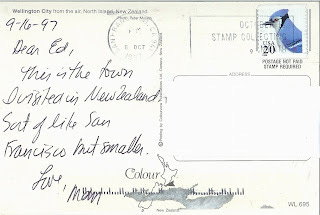 Wellington City from the air, North Island, New Zealand
9-16-97
Dear Ed,
This is the town
I visited in New Zealand.
Sort of like San
Francisco but smaller.
Love, Mom
OCTOBER
STAMP COLLECTING
USA
20
POSTAGE NOT PAID
STAMP REQUIRED
Colour
New Zealand
WL 695